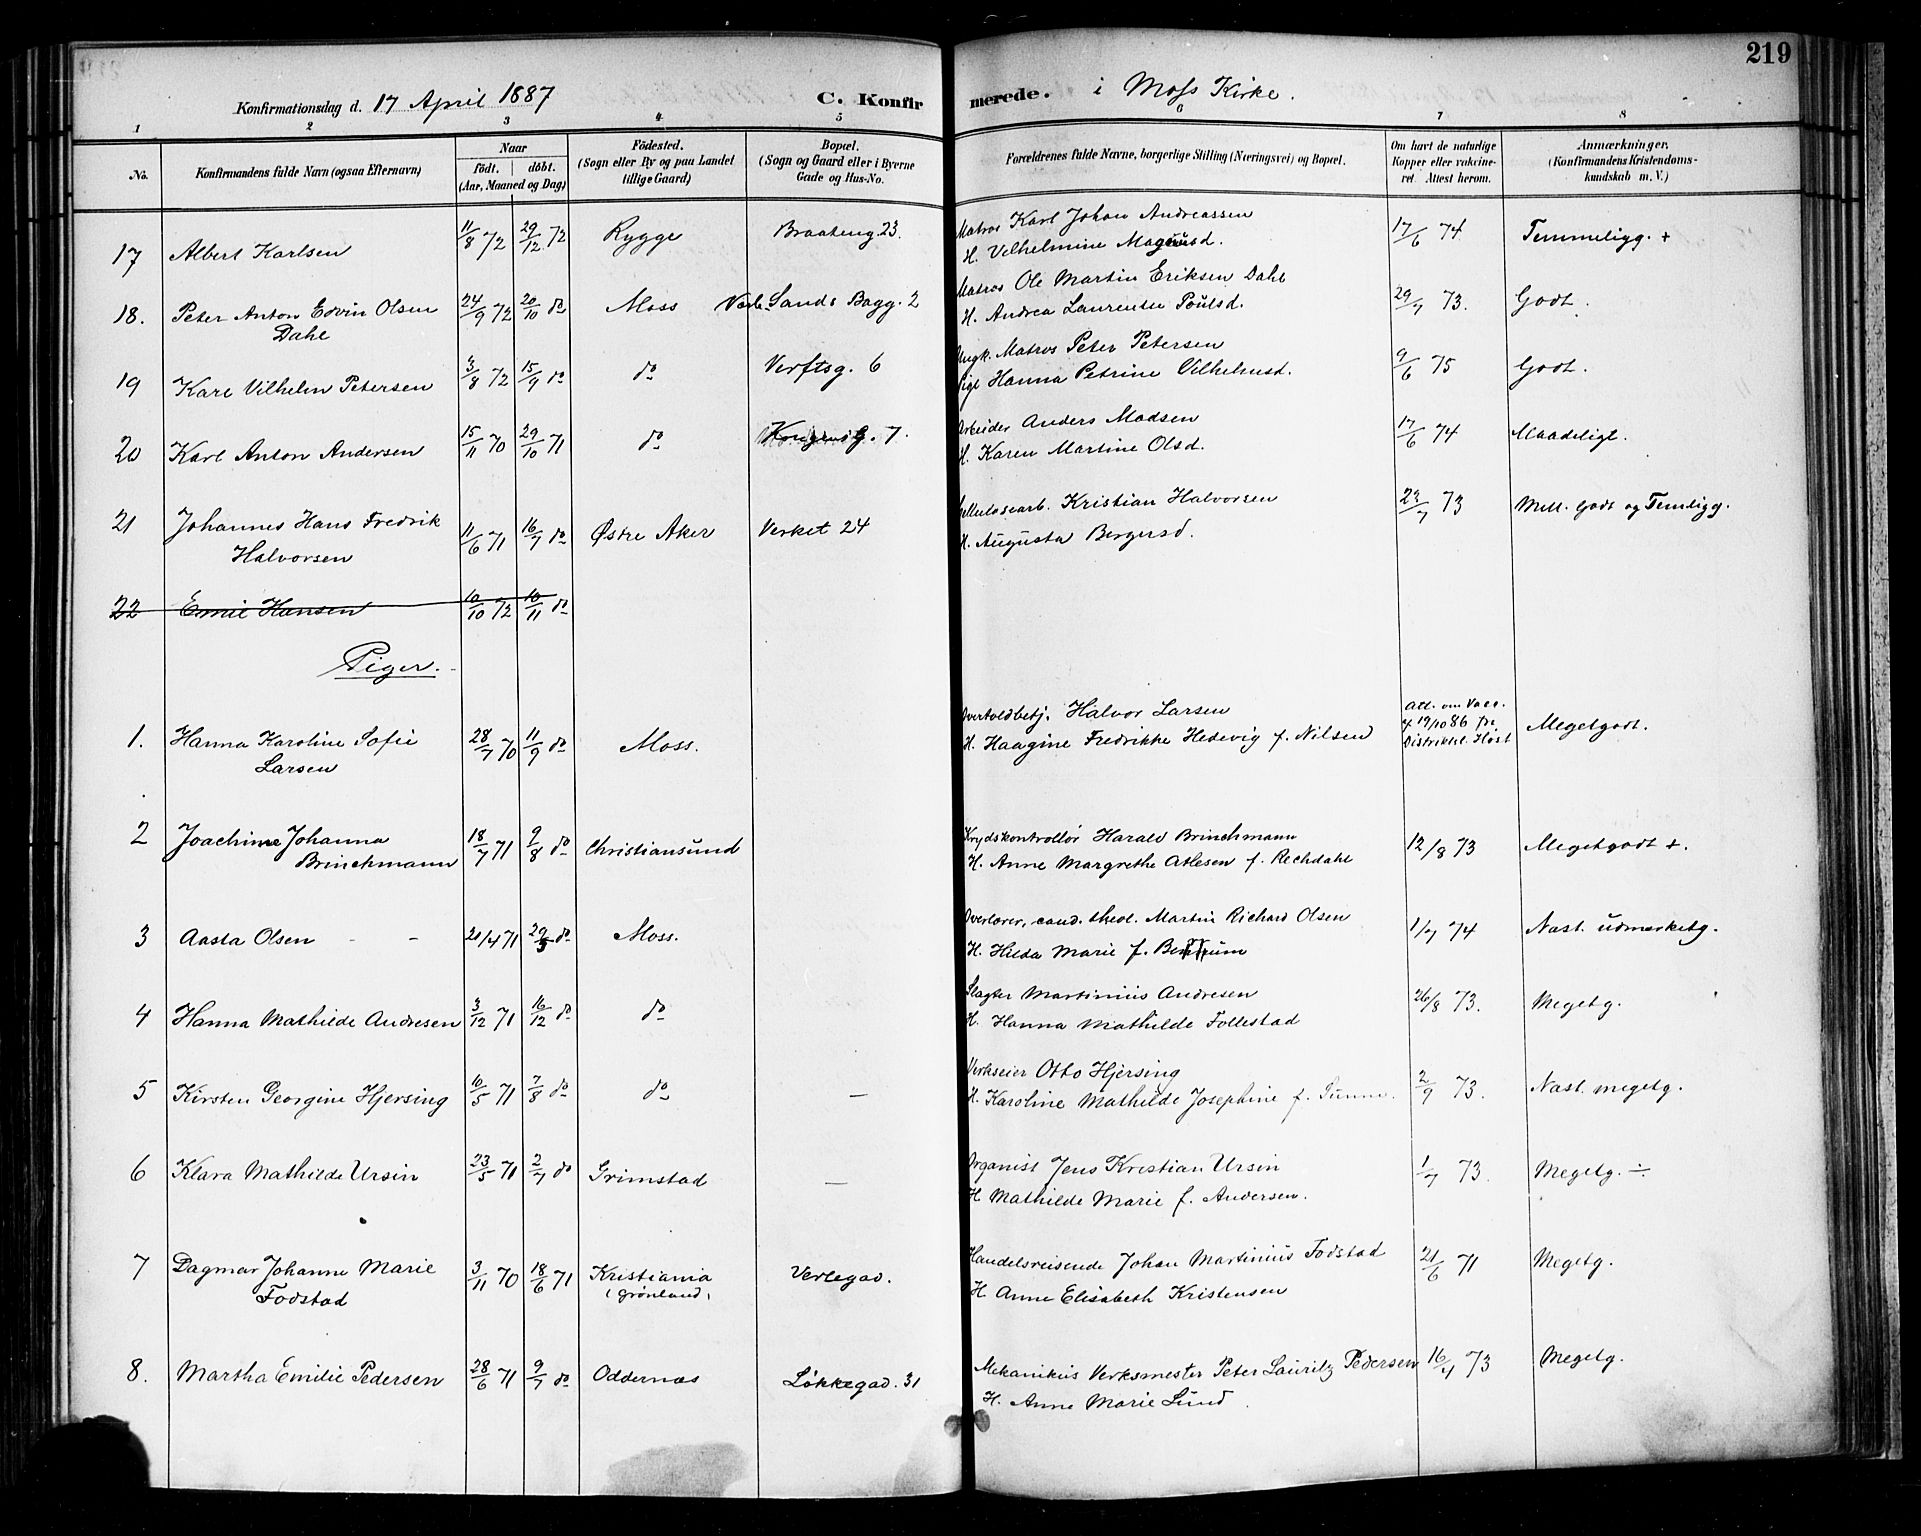 219
Konfirmationsdag d. 17 April 1887 C. Konfirmerede. i Moss Kirke.
1 2 3 4 5 6 7 8
No. Konfirmandens fulde Navn (ogsaa Efternavn) Naar födt. döbt. (Aar, Maaned og Dag) Födested. (Sogn eller By og paa Landet tillige Gaard) Bopæl. (Sogn og Gaard eller i Byerne Gade og Hus-No. Forældrenes fulde Navne, borgerlige Stilling (Næringsvei) og Bopæl. Om havt de naturlige Kopper eller vaccineret. Attest herom. Anmærkninger. (Konfirmandens Kristendomskundskab m. V.)
17 Albert Karlsen 11/8 72 29/12 72 Rygge Braateng. 23. Matros Karl Johan Andreassen 17/6 74 Temmeligg. +
H. Vilhelmine Magnusd.
18. Peter Anton Edvin Olsen Dahl 24/9 72 20/10 do Moss Sands Bagg. 2 Matros Ole Martin Eriksen Dahl 29/7 73. Godt.
H. Andrea Laurentse Poulsd.
19 Karl Vilhelm Petersen 3/8 72 15/9 do do Verftsg. 6 Ungk. Matros Peter Petersen 9/6 75 Godt.
Pige Hanna Petrine Vilhelmsd.
20 Karl Anton Andersen 15/11 70 29/10 71 do Kongensg. 7. Arbeider Anders Madsen 17/6 74 Maadeligt.
H. Karen Martine Olsd.
21 Johannes Hans Fredrik Halvorsen 11/6 71 16/7 do Østre Aker Verket 24 Cellulosearb. Kristian Halvorsen 23/7 73 Mell. Godt og Temligg.
H. Augusta Bergersd.
22 Emil Hansen 10/10 72 10/11 do
Piger.
1. Hanna Karoline Sofie Larsen 28/7 70 11/9 do Moss. Overtoldbetj. Halvor Larsen Att. om Vacc. 19/10 86 fra Distriktsl. Høst Megetgodt.
H. Haagine Fredrikke Hedevig f. Nilsen
2 Joachime Johanna Brinchmann 18/7 71 9/8 do Christiansund Krydskontrollør Harald Brinchmann 12/8 73 Megetgodt +.
H. Anne Margrethe Atlesen f. Rechdahl
3 Aasta Olsen - - 20/4 71 29/5 do Moss. Overlærer, cand. theol. Martin Richard Olsen 1/7 74 Næst. udmerketg.
H. Hilda Marie f.
4 Hanna Mathilde Andresen 3/12 71 16/12 do do Slagter Martinius Andresen 26/8 73. Megetg.
H. Hanna Mathilde Follestad
5 Kirsten Georgine Hjersing 10/5 71 7/8 do do - Verkseier Otto Hjersing 2/9 73. Næst. megetg.
H. Karoline Mathilde Josephine f.
6 Klara Mathilde Ursin 23/5 71 2/7 do Grimstad - Organist Jens Kristian Ursin 1/7 73. Megetg. ÷
H. Mathilde Marie f. Andersen.
7 Dagmar Johanne Marie Fodstad 3/11 70 18/6 71 Kristiania (Grönland) Verlegad. Handelsreisende Johan Martinius Fodstad 21/6 71 Megetg.
H. Anne Elisabeth Kristensen
8. Martha Emilie Pedersen 28/6 71 9/7 do Oddernæs Løkkegad. 31 Mekanikus Verksmester Peter Lauritz Pedersen 16/4 73 Megetg.
H. Anne Marie Lund